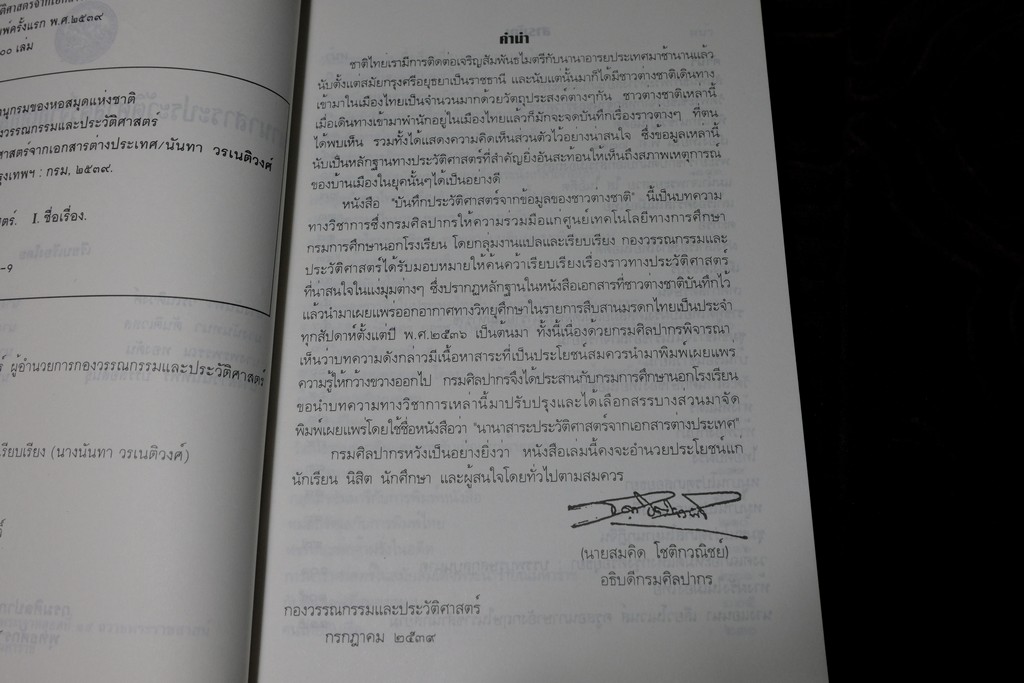 ติศาสตร์จากเอกสาร
พิมพ์ครั้งแรก พ.ศ.๒๕๓๙
๐๐ เล่ม
นุกรมของหอสมุดแห่งชาติ
องวรรณกรรมและประวัติศาสตร์
ศาสตร์จากเอกสารต่างประเทศ/นันทา วรเนติวงศ์
รุงเทพฯ : กรม, ๒๕๓๙.
ตร์. I. ชื่อเรื่อง.
-๙
ผู้อำนวยการกองวรรณกรรมและประวัติศาสตร์
รียบเรียง (นางนันทา วรเนติวงศ์)
คำนำ
ชาติไทยเรามีการติดต่อเจริญสัมพันธไมตรีกับนานาอารยประเทศมาช้านานแล้ว
นับตั้งแต่สมัยกรุงศรีอยุธยาเป็นราชธานี และนับแต่นั้นมาก็ได้มีชาวต่างชาติเดินทาง
เข้ามาในเมืองไทยเป็นจำนวนมากด้วยวัตถุประสงค์ต่างๆกัน ชาวต่างชาติเหล่านี้
เมื่อเดินทางเข้ามาพำนักอยู่ในเมืองไทยแล้วก็มักจะจดบันทึกเรื่องราวต่างๆ ที่ตน
ได้พบเห็น รวมทั้งได้แสดงความคิดเห็นส่วนตัวไว้อย่างน่าสนใจ ซึ่งข้อมูลเหล่านี้
นับเป็นหลักฐานทางประวัติศาสตร์ที่สำคัญยิ่งอันสะท้อนให้เห็นถึงสภาพเหตุการณ์
ของบ้านเมืองในยุคนั้นๆได้เป็นอย่างดี
หนังสือ "บันทึกประวัติศาสตร์จากข้อมูลของชาวต่างชาติ" นี้เป็นบทความ
ทางวิชาการซึ่งกรมศิลปากรให้ความร่วมมือแก่ศูนย์เทคโนโลยีทางการศึกษา
กรมการศึกษานอกโรงเรียน โดยกลุ่มงานแปลและเรียบเรียง กองวรรณกรรมและ
ประวัติศาสตร์ได้รับมอบหมายให้ค้นคว้าเรียบเรียงเรื่องราวทางประวัติศาสตร์
ที่น่าสนใจในแง่มุมต่างๆ ซึ่งปรากฏหลักฐานในหนังสือเอกสารที่ชาวต่างชาติบันทึกไว้
แล้วนำมาเผยแพร่ออกอากาศทางวิทยุศึกษาในรายการสืบสานมรดกไทยเป็นประจำ
ทุกสัปดาห์ตั้งแต่ปี พ.ศ.๒๕๓๖ เป็นต้นมา ทั้งนี้เนื่องด้วยกรมศิลปากรพิจารณา
เห็นว่าบทความดังกล่าวมีเนื้อหาสาระที่เป็นประโยชน์สมควรนำมาพิมพ์เผยแพร่
ความรู้ให้กว้างขวางออกไป กรมศิลปากรจึงได้ประสานกับกรมการศึกษานอกโรงเรียน
ขอนำบทความทางวิชาการเหล่านี้มาปรับปรุงและได้เลือกสรรบางส่วนมาจัด
พิมพ์เผยแพร่โดยใช้ชื่อหนังสือว่า "นานาสาระประวัติศาสตร์จากเอกสารต่างประเทศ"
กรมศิลปากรหวังเป็นอย่างยิ่งว่า หนังสือเล่มนี้คงจะอำนวยประโยชน์แก่
นักเรียน นิสิต นักศึกษา และผู้สนใจโดยทั่วไปตามสมควร
(นายสมคิด โชติกวณิชย์)
อธิบดีกรมศิลปากร
กองวรรณกรรมและประวัติศาสตร์
กรกฎาคม ๒๕๓๙